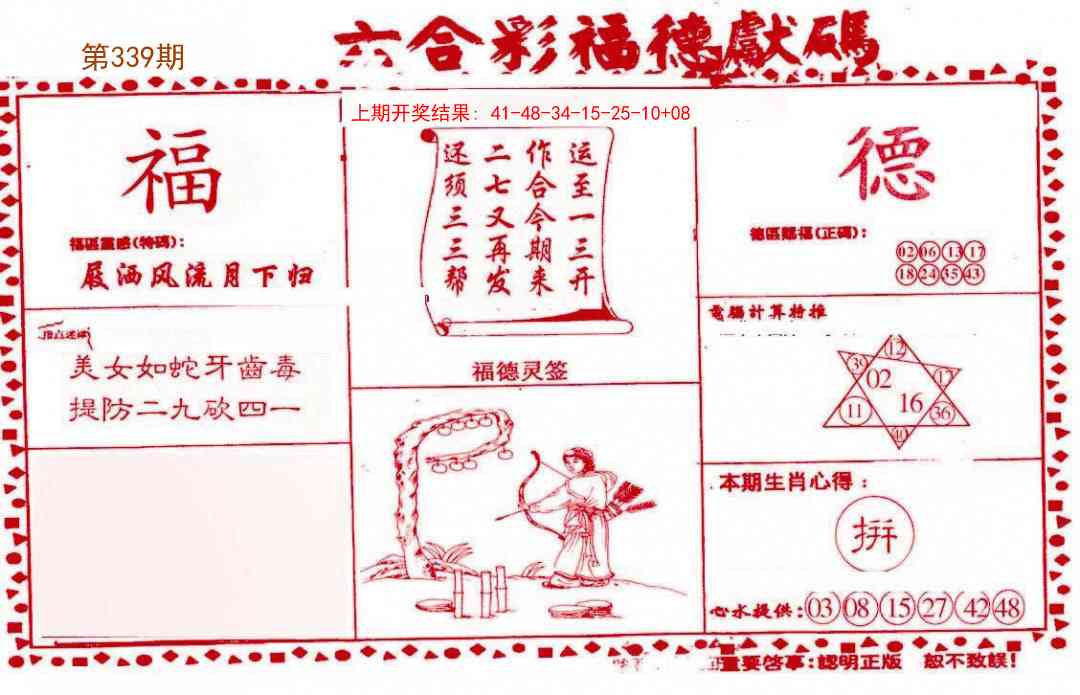 六合彩福德獻碼
第339期
上期开奖结果: 41-48-34-15-25-10+08
福
福區靈感(特碼):
屐洒风流月下归
美女如蛇牙齒毒
提防二九砍四一
运至一三开
作合今期来
二七又再发
还须三三帮
福德灵签
德
德區賜福(正碼):
02 06 13 17
18 24 35 43
電腦計算特推
12
39 02 17
11 16 36
40
本期生肖心得:
拼
心水提供: 03 08 15 27 42 48
重要啓事:認明正版 恕不致誤!